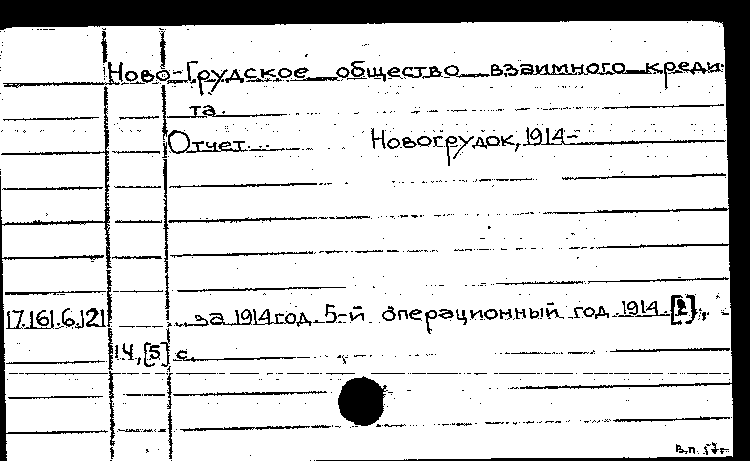 Ново-Грудское общество взаимного креди-
та.
Отчет... Новогрудок, 1914-
17.161.6.121 ...за 1914 год. 5-й операционный год. 1914. [2],
14, [5] с.
В.п. 57г